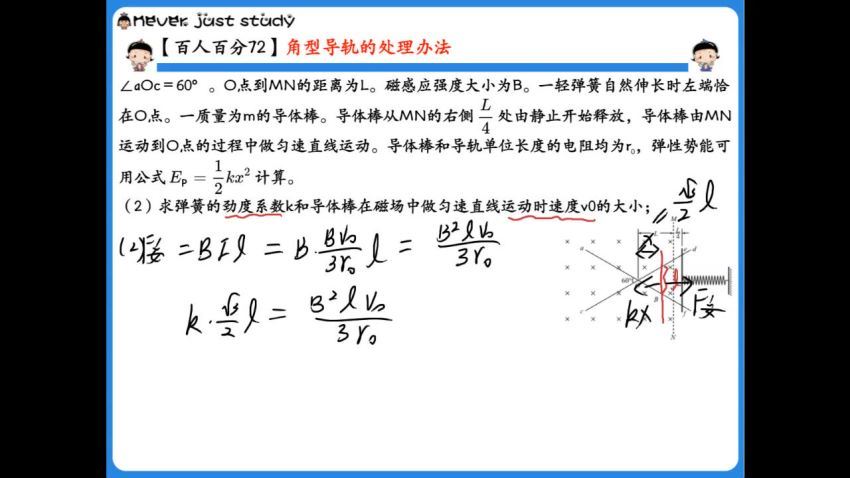 Never just study
【百人百分72】角型导轨的处理办法
∠aOc=60° 。O点到MN的距离为L。磁感应强度大小为B。一轻弹簧自然伸长时左端恰
在O点。一质量为m的导体棒。导体棒从MN的右侧 L/4 处由静止开始释放，导体棒由MN
运动到O点的过程中做匀速直线运动。导体棒和导轨单位长度的电阻均为r₀，弹性势能可
用公式 Eₚ = 1/2 kx² 计算。
（2）求弹簧的劲度系数k和导体棒在磁场中做匀速直线运动时速度v0的大小；
√3/2 l
(2) F安 = BIl = B·Bv₀/3r₀ l = B²lv₀/3r₀
k·√3/2 l = B²lv₀/3r₀
M
a
d
60°
x
l
kx
F安
c
N